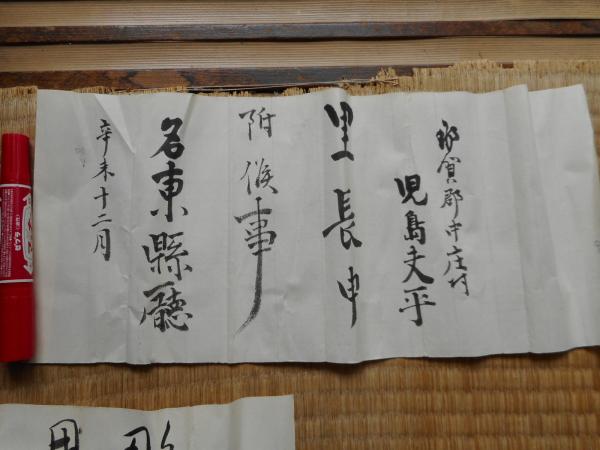 那賀郡中庄村
児島丈平
里長申
附候事
名東縣廳
辛未十二月